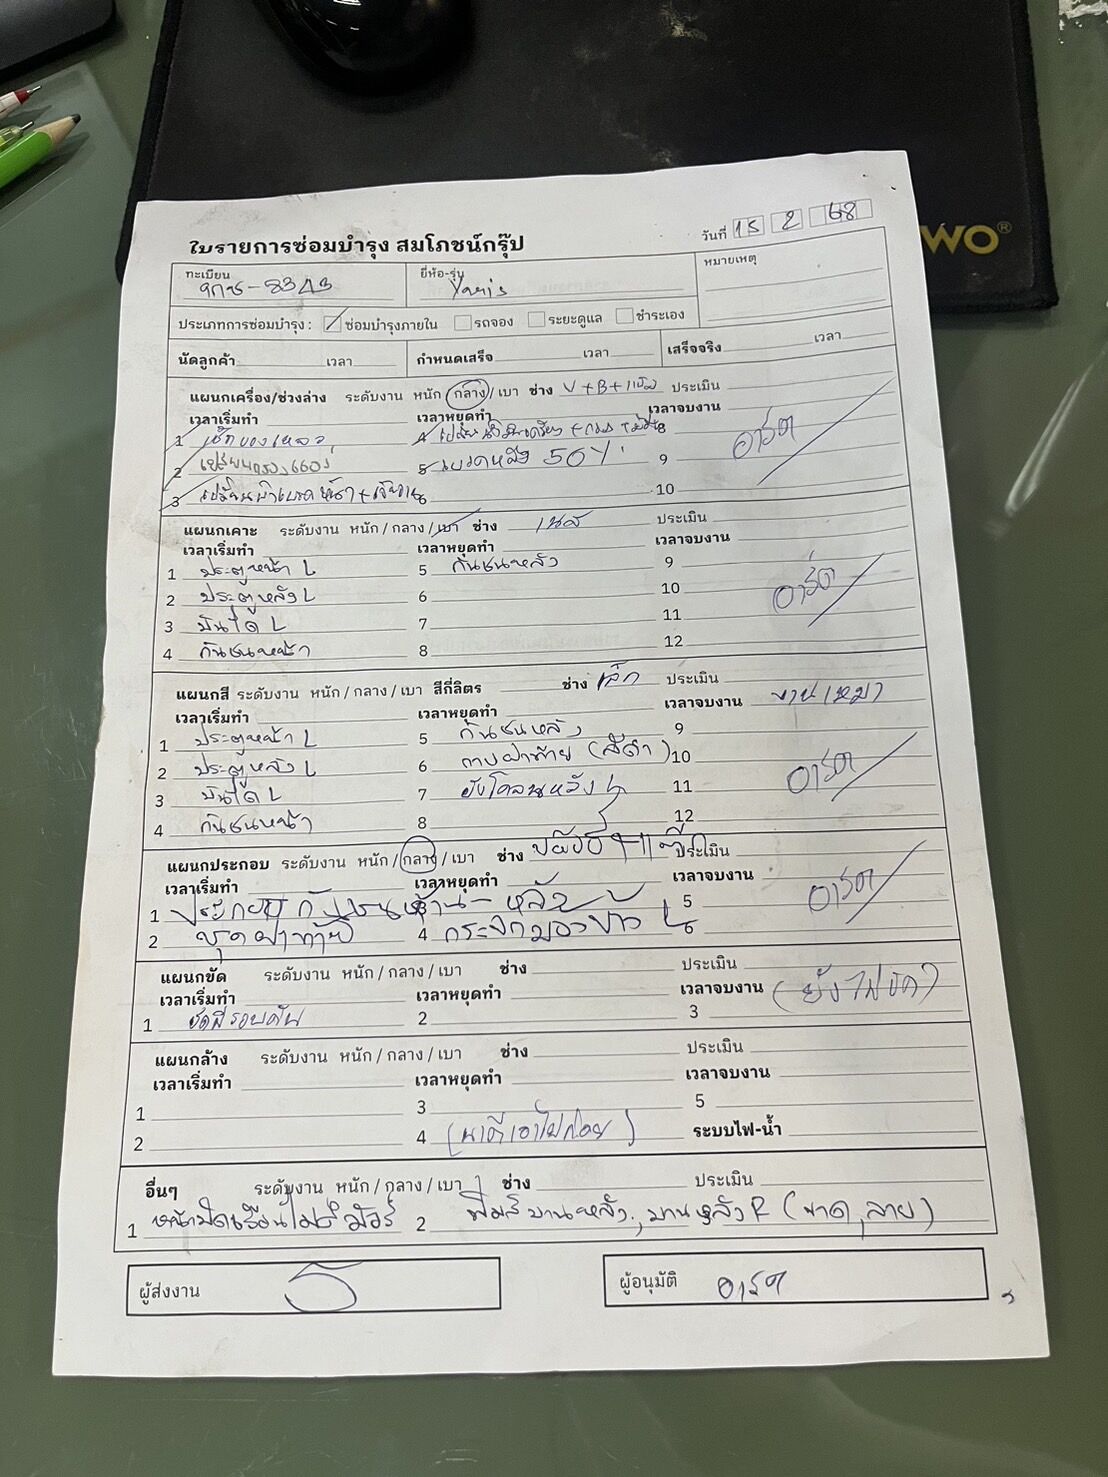 WO®
ใบรายการซ่อมบำรุง สมโภชน์กรุ๊ป
วันที่ 15 2 68
ทะเบียน
ยี่ห้อ-รุ่น Yaris
หมายเหตุ
ประเภทการซ่อมบำรุง : ซ่อมบำรุงภายใน รถจอง ระยะดูแล ชำระเอง
นัดลูกค้า เวลา กำหนดเสร็จ เวลา เสร็จจริง เวลา
แผนกเครื่อง/ช่วงล่าง ระดับงาน หนัก / กลาง / เบา ช่าง V+B+ ประเมิน
เวลาเริ่มทำ เวลาหยุดทำ เวลาจบงาน
1 เช็คของเหลว 4 เปลี่ยนน้ำมันเครื่อง + กรอง 8
2 เปลี่ยนกรองแอร์ 5 เบรคหลัง 50% 9
3 เปลี่ยนผ้าเบรคหน้า + 6 10
แผนกเคาะ ระดับงาน หนัก / กลาง / เบา ช่าง ประเมิน
เวลาเริ่มทำ เวลาหยุดทำ เวลาจบงาน
1 ประตูหน้า L 5 กันชนหลัง 9
2 ประตูหลัง L 6 10
3 บันได L 7 11
4 กันชนหน้า 8 12
แผนกสี ระดับงาน หนัก / กลาง / เบา สีกี่ลิตร ช่าง เล็ก ประเมิน
เวลาเริ่มทำ เวลาหยุดทำ เวลาจบงาน งานเหมา
1 ประตูหน้า L 5 กันชนหลัง 9
2 ประตูหลัง L 6 กาบฝาท้าย (สีดำ) 10
3 บันได L 7 บังโคลนหลัง L 11
4 กันชนหน้า 8 12
แผนกประกอบ ระดับงาน หนัก / กลาง / เบา ช่าง ประเมิน
เวลาเริ่มทำ เวลาหยุดทำ เวลาจบงาน
1 ประกอบกันชนหน้า - หลัง 3 5
2 ชุดฝาท้าย 4 กระจกมองข้าง L 6
แผนกขัด ระดับงาน หนัก / กลาง / เบา ช่าง ประเมิน
เวลาเริ่มทำ เวลาหยุดทำ เวลาจบงาน (ยังไม่ขัด)
1 ขัดสีรอบคัน 2 3
แผนกล้าง ระดับงาน หนัก / กลาง / เบา ช่าง ประเมิน
เวลาเริ่มทำ เวลาหยุดทำ เวลาจบงาน
1 3 5
2 4 ระบบไฟ-น้ำ
อื่นๆ ระดับงาน หนัก / กลาง / เบา ช่าง ประเมิน
1 2 (ขาด, ลาย)
ผู้ส่งงาน
ผู้อนุมัติ